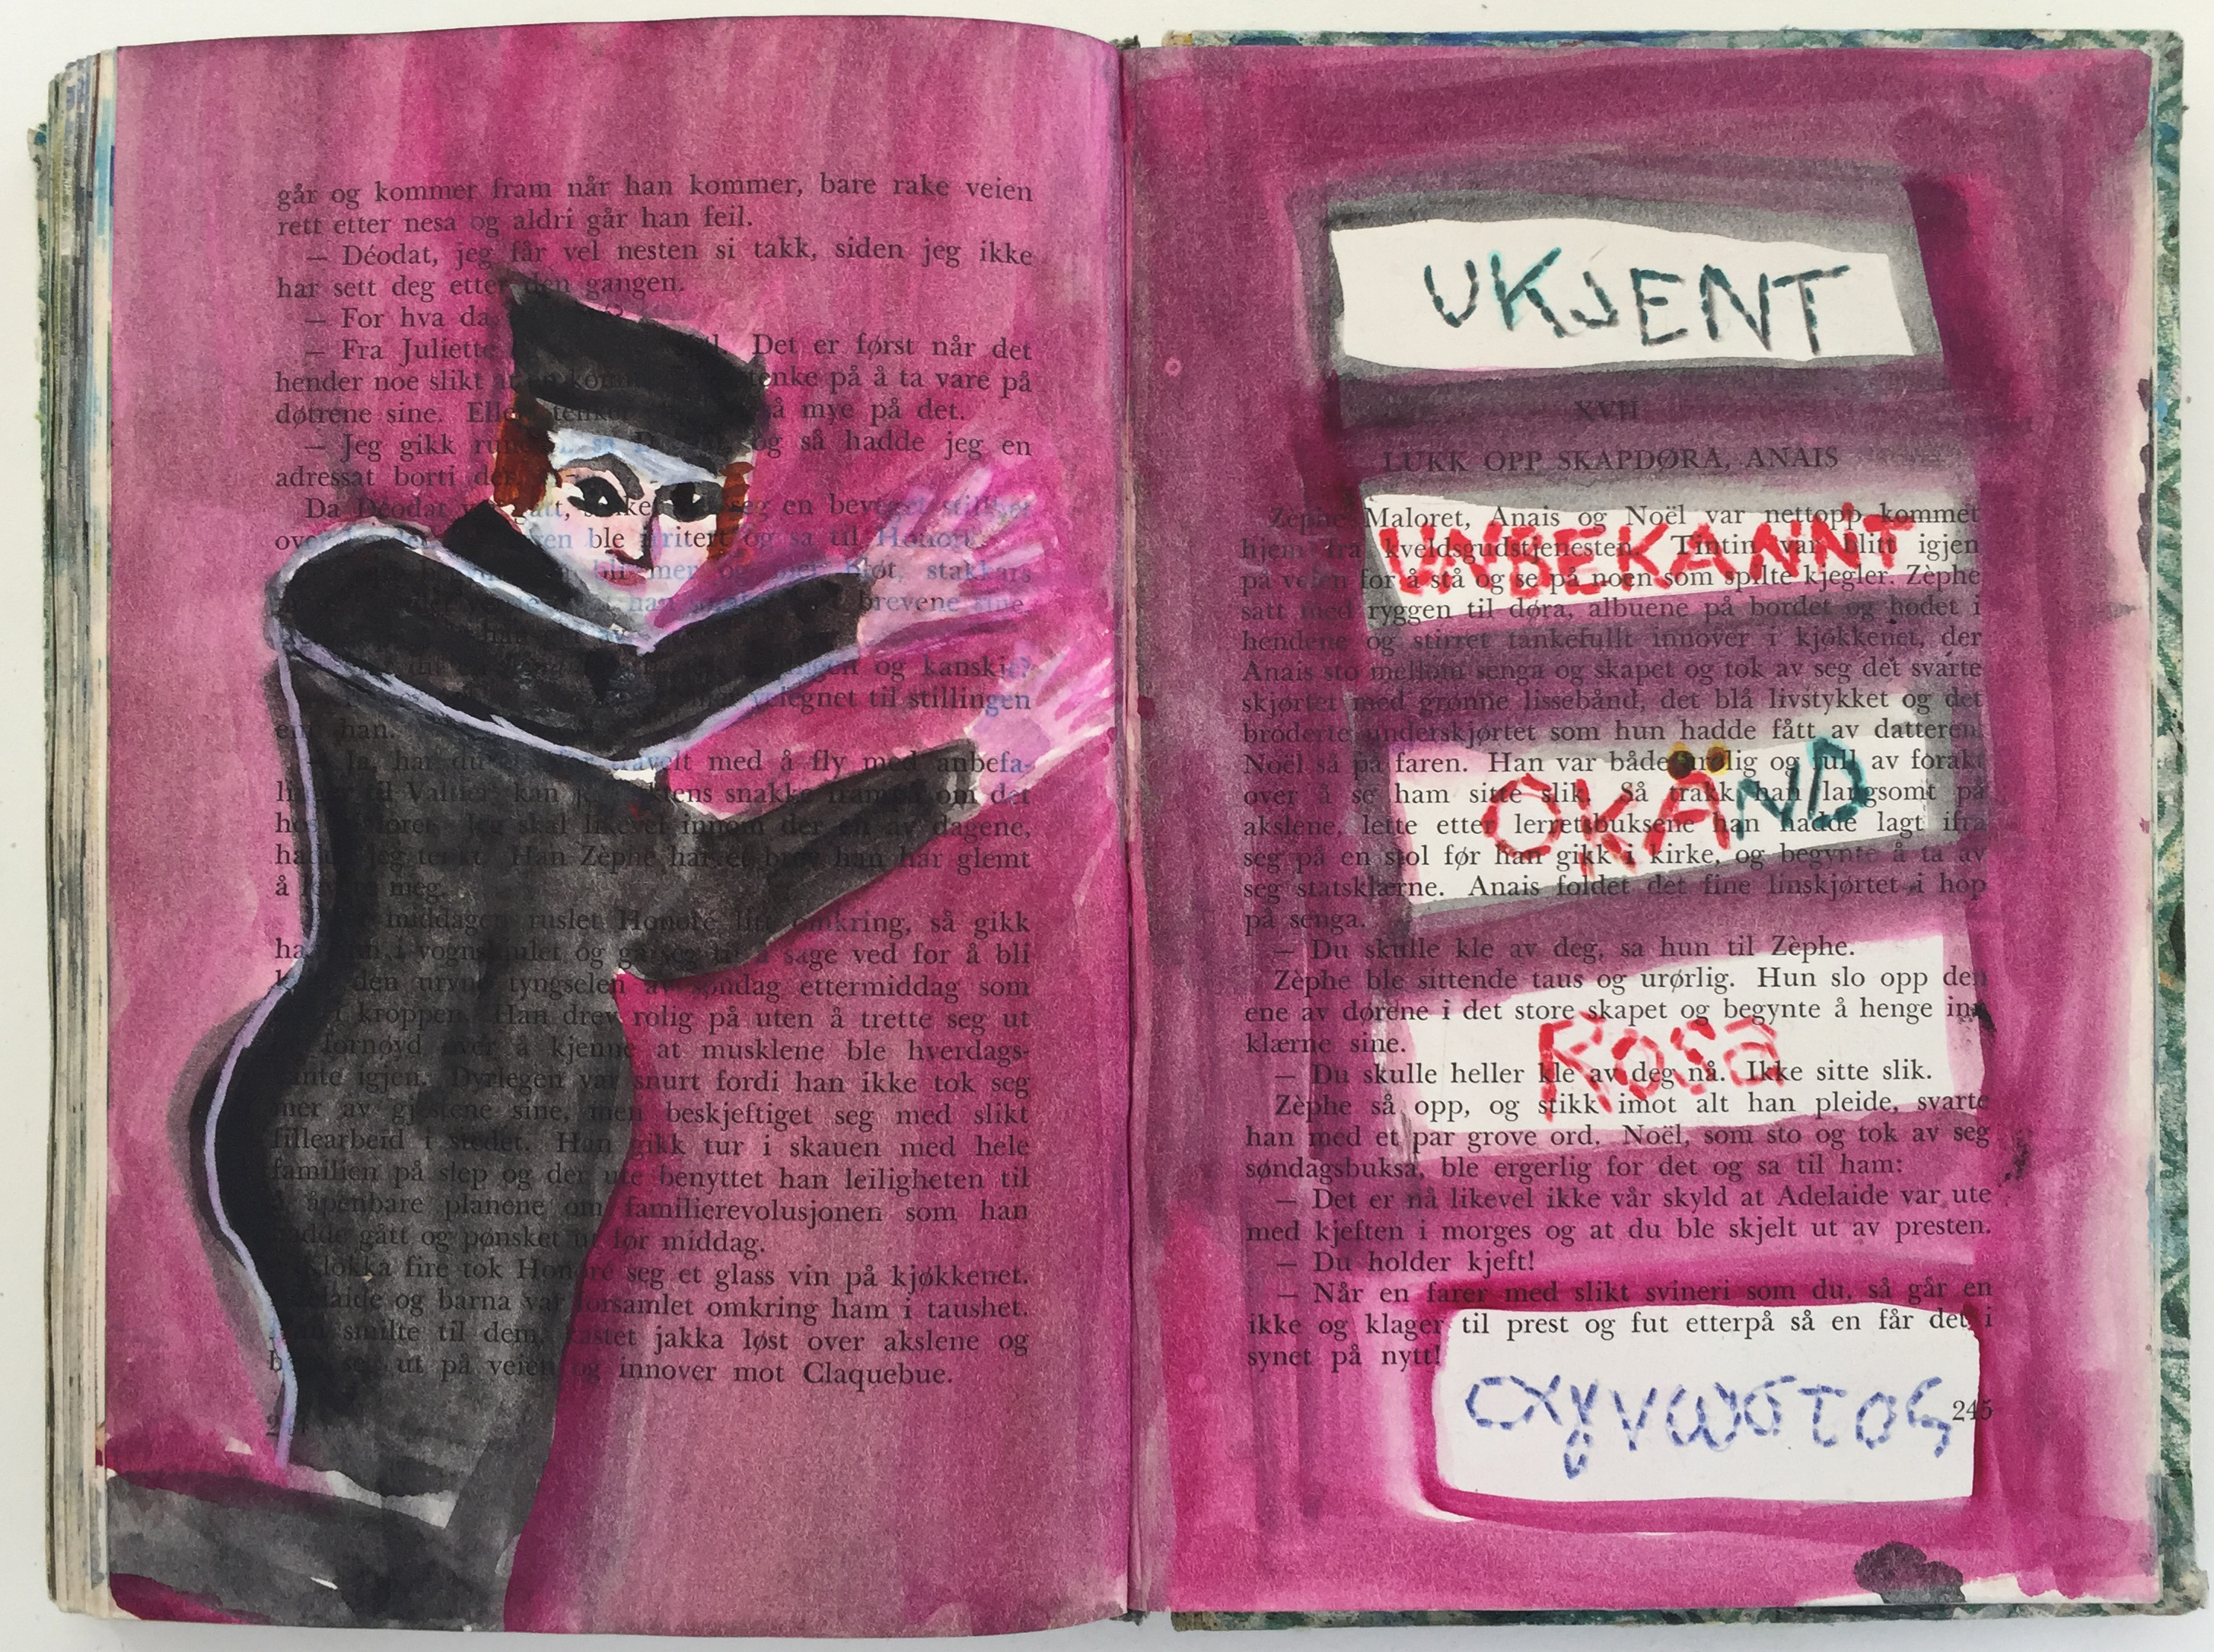 går og kommer fram når han kommer, bare rake veien
rett etter nesa og aldri går han feil.
— Déodat, jeg får vel nesten si takk, siden jeg ikke
har sett deg etter den gangen.
— For hva da
— Fra Juliette Det er først når det
hender noe slikt tenke på å ta vare på
døtrene sine. så mye på det.
— Jeg gikk og så hadde jeg en
adressat borti
Da Déodat gått, en
ble irritert og sa til Honoré
bløt, stakkars
brevene sine,
og kanskje
velegnet til stillingen
enn han.
— Ja, har du med å fly med anbefa-
til Valtier, kan snakke om det
hos Jeg skal likevel innom der en av dagene,
hadde jeg tenkt. Han Zèphe har et brev han har glemt
å meg.
middagen ruslet Honoré litt omkring, så gikk
han i vognskjulet og ga seg til å sage ved for å bli
den urvne tyngselen av søndag ettermiddag som
i kroppen. Han drev rolig på uten å trette seg ut
fornøyd over å kjenne at musklene ble hverdags-
igjen. Dyrlegen var snurt fordi han ikke tok seg
mer av gjestene sine, men beskjeftiget seg med slikt
fillearbeid i stedet. Han gikk tur i skauen med hele
familien på slep og der ute benyttet han leiligheten til
å åpenbare planene om familierevolusjonen som han
hadde gått og pønsket ut før middag.
Klokka fire tok Honoré seg et glass vin på kjøkkenet.
Adelaide og barna var forsamlet omkring ham i taushet.
smilte til dem, kastet jakka løst over akslene og
ut på veien og innover mot Claquebue.
UKJENT
XVII
LUKK OPP SKAPDØRA, ANAIS
Zèphe Maloret, Anais og Noël var nettopp kommet
UNBEKANNT
hjem fra kveldsgudstjenesten. Tintin var blitt igjen
på veien for å stå og se på noen som spilte kjegler. Zèphe
satt med ryggen til døra, albuene på bordet og hodet i
hendene og stirret tankefullt innover i kjøkkenet, der
Anais sto mellom senga og skapet og tok av seg det svarte
skjørtet med grønne lissebånd, det blå livstykket og det
broderte underskjørtet som hun hadde fått av datteren.
Noël så på faren. Han var både urolig og full av forakt
over å se ham sitte slik. Så trakk han langsomt på
OKÄND
akslene, lette etter lerretsbuksene han hadde lagt ifra
seg på en stol før han gikk i kirke, og begynte å ta av
seg statsklærne. Anais foldet det fine linskjørtet i hop
på senga.
— Du skulle kle av deg, sa hun til Zèphe.
Zèphe ble sittende taus og urørlig. Hun slo opp den
ene av dørene i det store skapet og begynte å henge inn
klærne sine.
Rosa
— Du skulle heller kle av deg nå. Ikke sitte slik.
Zèphe så opp, og stikk imot alt han pleide, svarte
han med et par grove ord. Noël, som sto og tok av seg
søndagsbuksa, ble ergerlig for det og sa til ham:
— Det er nå likevel ikke vår skyld at Adelaide var ute
med kjeften i morges og at du ble skjelt ut av presten.
— Du holder kjeft!
— Når en farer med slikt svineri som du, så går en
ikke og klager til prest og fut etterpå så en får det i
synet på nytt!
245